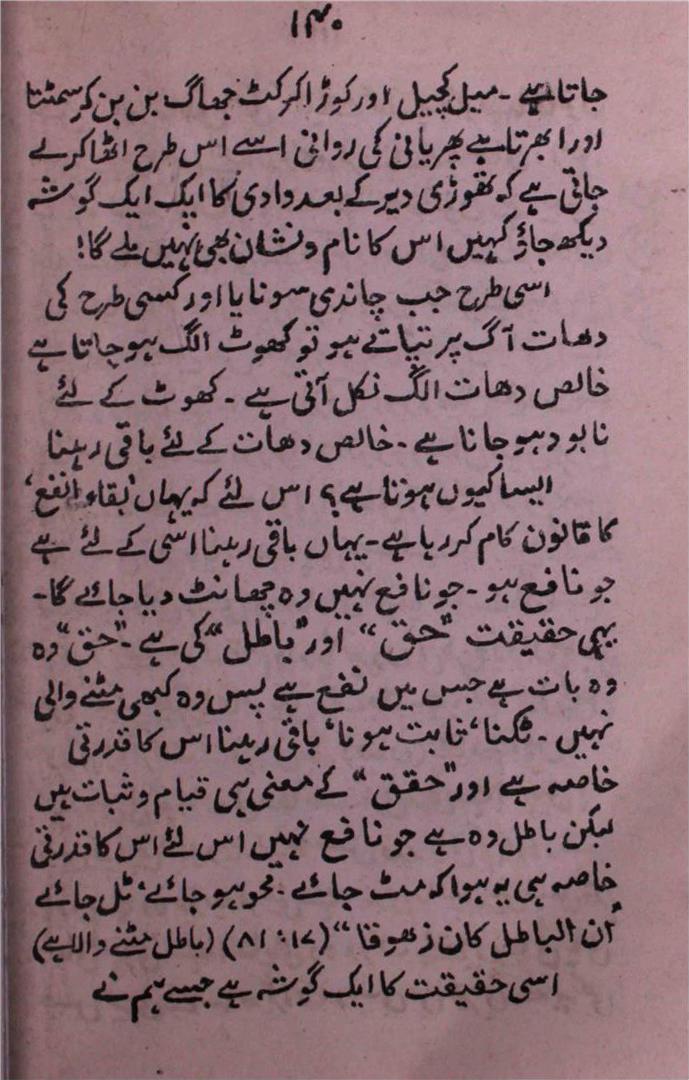 ۱۳۰
جاتا ہے ۔ میل کچیل اور کوڑا کرکٹ جھاگ بن بن کر سمٹتا
اور ابھرتا ہے پھر پانی کی روانی اسے اس طرح اٹھا کر لے
جاتی ہے کہ تھوڑی دیر کے بعد وادی کا ایک ایک گوشہ
دیکھ جاؤ کہیں اس کا نام و نشان بھی نہیں ملے گا!
اسی طرح جب چاندی سونا یا اور کسی طرح کی
دھات آگ پر تپاتے ہو تو کھوٹ الگ ہو جاتا ہے
خالص دھات الگ نکل آتی ہے ۔ کھوٹ کے لئے
نابود ہو جانا ہے ۔ خالص دھات کے لئے باقی رہنا
ایسا کیوں ہوتا ہے؟ اس لئے کہ یہاں ’بقاء انفع‘
کا قانون کام کر رہا ہے ۔ یہاں باقی رہنا اسی کے لئے ہے
جو نافع ہو ۔ جو نافع نہیں وہ چھانٹ دیا جائے گا ۔
یہی حقیقت ”حق“ اور ”باطل“ کی ہے ۔ ”حق“ وہ
وہ بات ہے جس میں نفع ہے پس وہ کبھی مٹنے والی
نہیں ۔ ٹکنا‘ ثابت ہونا‘ باقی رہنا اس کا قدرتی
خاصہ ہے اور ”حقق“ کے معنی ہی قیام و ثبات ہیں
لیکن باطل وہ ہے جو نافع نہیں اس لئے اس کا قدرتی
خاصہ ہی یہ ہوا کہ مٹ جائے ۔ محو ہو جائے‘ ٹل جائے
”ان الباطل کان زھوقا“ (۱۷ : ۸۱) (باطل مٹنے والا ہے)
اسی حقیقت کا ایک گوشہ ہے جسے ہم نے